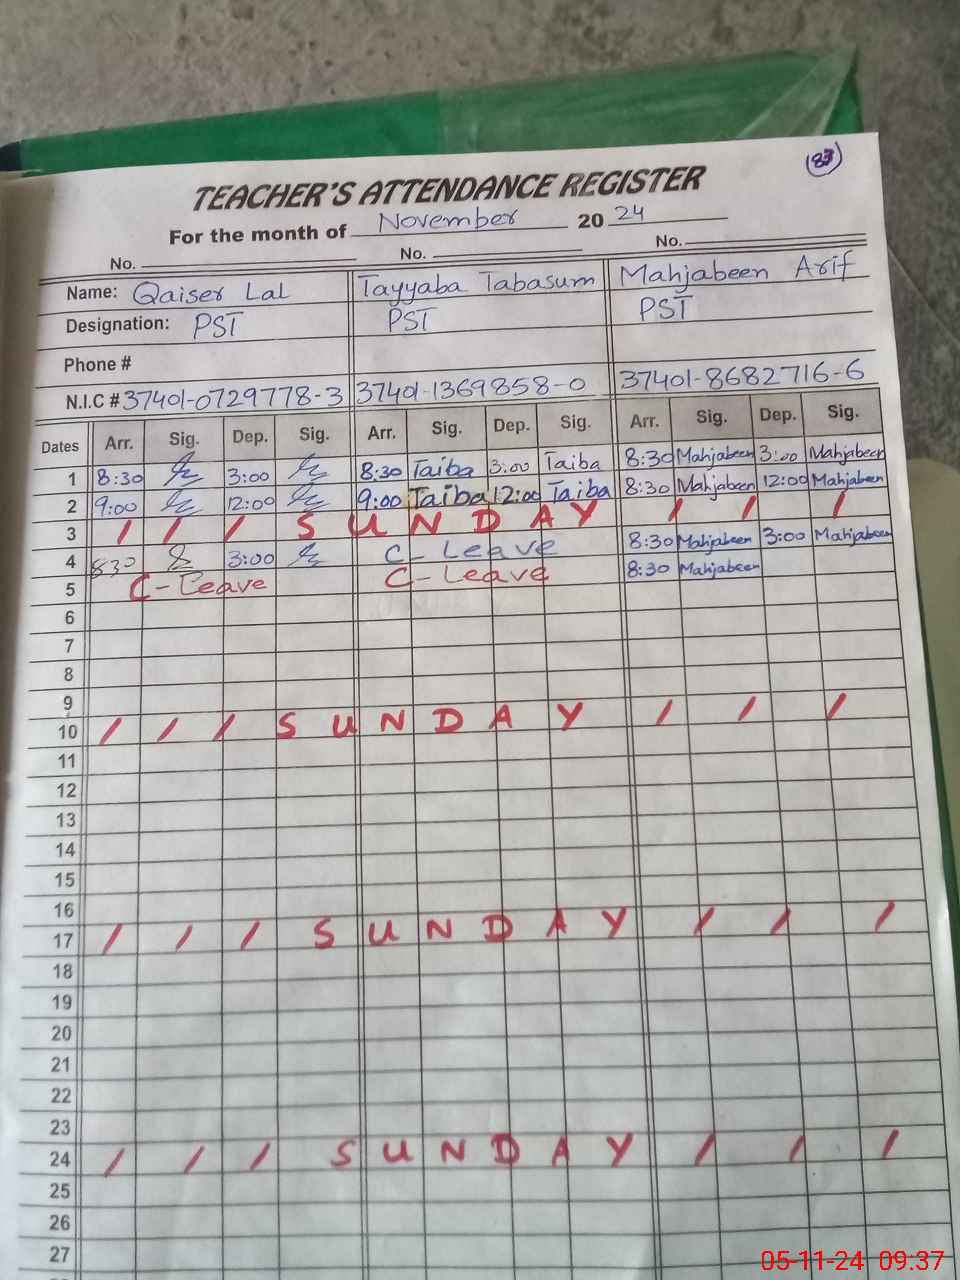 83
TEACHER'S ATTENDANCE REGISTER
For the month of November 20 24
No. No. No.
Name: Qaiser Lal Tayyaba Tabasum Mahjabeen Arif
Designation: PST PST PST
Phone #
N.I.C # 37401-0729778-3 37401-1369858-0 37401-8682716-6
Dates Arr. Sig. Dep. Sig. Arr. Sig. Dep. Sig. Arr. Sig. Dep. Sig.
1 8:30 3:00 8:30 Taiba 3:00 Taiba 8:30 Mahjabeen 3:00 Mahjabeen
2 9:00 12:00 9:00 Taiba 12:00 Taiba 8:30 Mahjabeen 12:00 Mahjabeen
3 / / / S U N D A Y / / /
4 830 3:00 C-Leave 8:30 Mahjabeen 3:00 Mahjabeen
5 C-Leave C-Leave 8:30 Mahjabeen
6
7
8
9
10 / / / S U N D A Y / / /
11
12
13
14
15
16
17 / / / S U N D A Y / / /
18
19
20
21
22
23
24 / / / S U N D A Y / / /
25
26
27
05-11-24 09:37